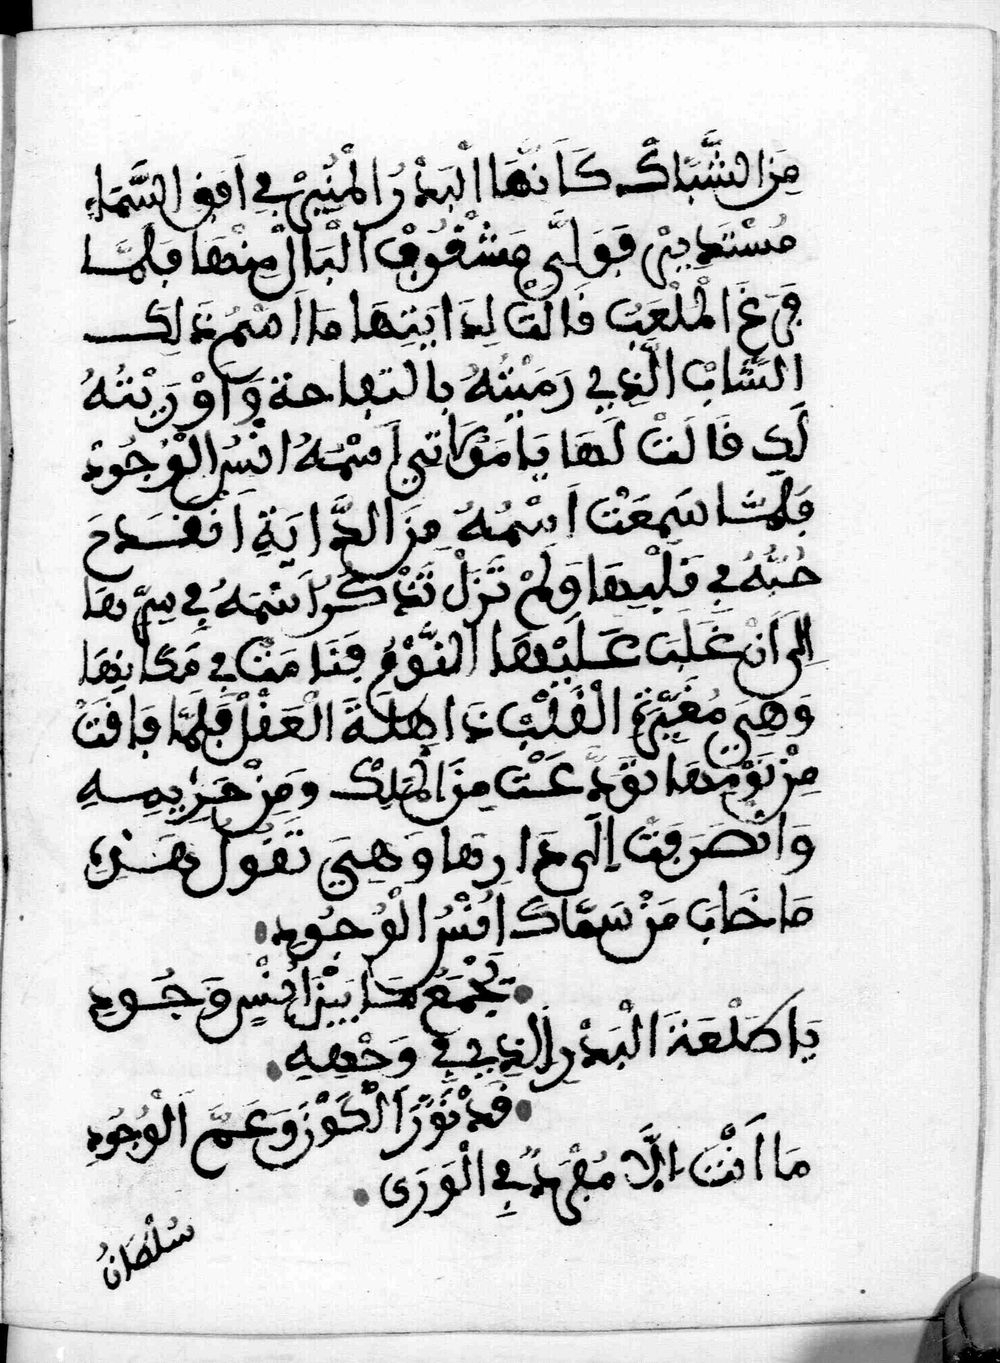 مِنَ الشُّبَّاكِ كَأَنَّهَا الْبَدْرُ الْمُنِيرُ فِي اَفِقِ السَّمَاءِ
مُسْتَدِيرْ فَوَلَّى مَشْغُوفْ الْبَالْ مِنْهَا فَلَمَّا
فَرَغَ الْمَلْعَبُ قَالَتْ لِدَايَتِهَا مَا اَسْمُ ذَلِكَ
الشَّابْ الَّذِي رَمَيْتُهُ بِالتفاحة وَاَوْرَيْتُهُ
لَكِ قَالَتْ لَهَا يَا مَوْلَاتِي اَسْمُهُ انْسُ الْوُجُودْ
فَلَمَّا سَمِعَتْ اَسْمُهُ مِنَ الدَّايَةِ اَنْقَدَحَ
حُبُّهُ فِي قَلْبِهَا وَلَمْ تَزَلْ تَذْكُرُ اَسْمَهُ فِي سِرِّهَا
إِلَى أَنْ غَلَبَ عَلَيْهَا النَّوْمُ فَنَامَتْ فِي مَكَانِهَا
وَهِيَ مُغَيَّرَةِ الْقَلْبْ ذَاهِلَةَ الْعَقْلْ فَلَمَّا فَاقَتْ
مِنْ نَوْمِهَا تَوَدَّعَتْ مِنَ الْمَلِكْ وَمِنْ حَرِيمِهِ
وَانْصَرَفَتْ إِلَى دَارِهَا وَهِيَ تَقُولُ هَذِهِ
مَا خَابَ مَنْ سَمَّاكَ اُنْسُ الْوُجُودِ
يَجْمَعُ مَا بَيْنَ اُنْسٍ وَجُودِ
يَا طَلْعَةَ الْبَدْرِ الَّذِي فِي وَجْهِهِ
قَدْ نَوَّرَ الْكَوْنَ وَعَمَّ الْوُجُودِ
مَا اَنْتَ إِلَّا مُفْرَدٌ فِي الْوَرَى
سُلْطَانُ